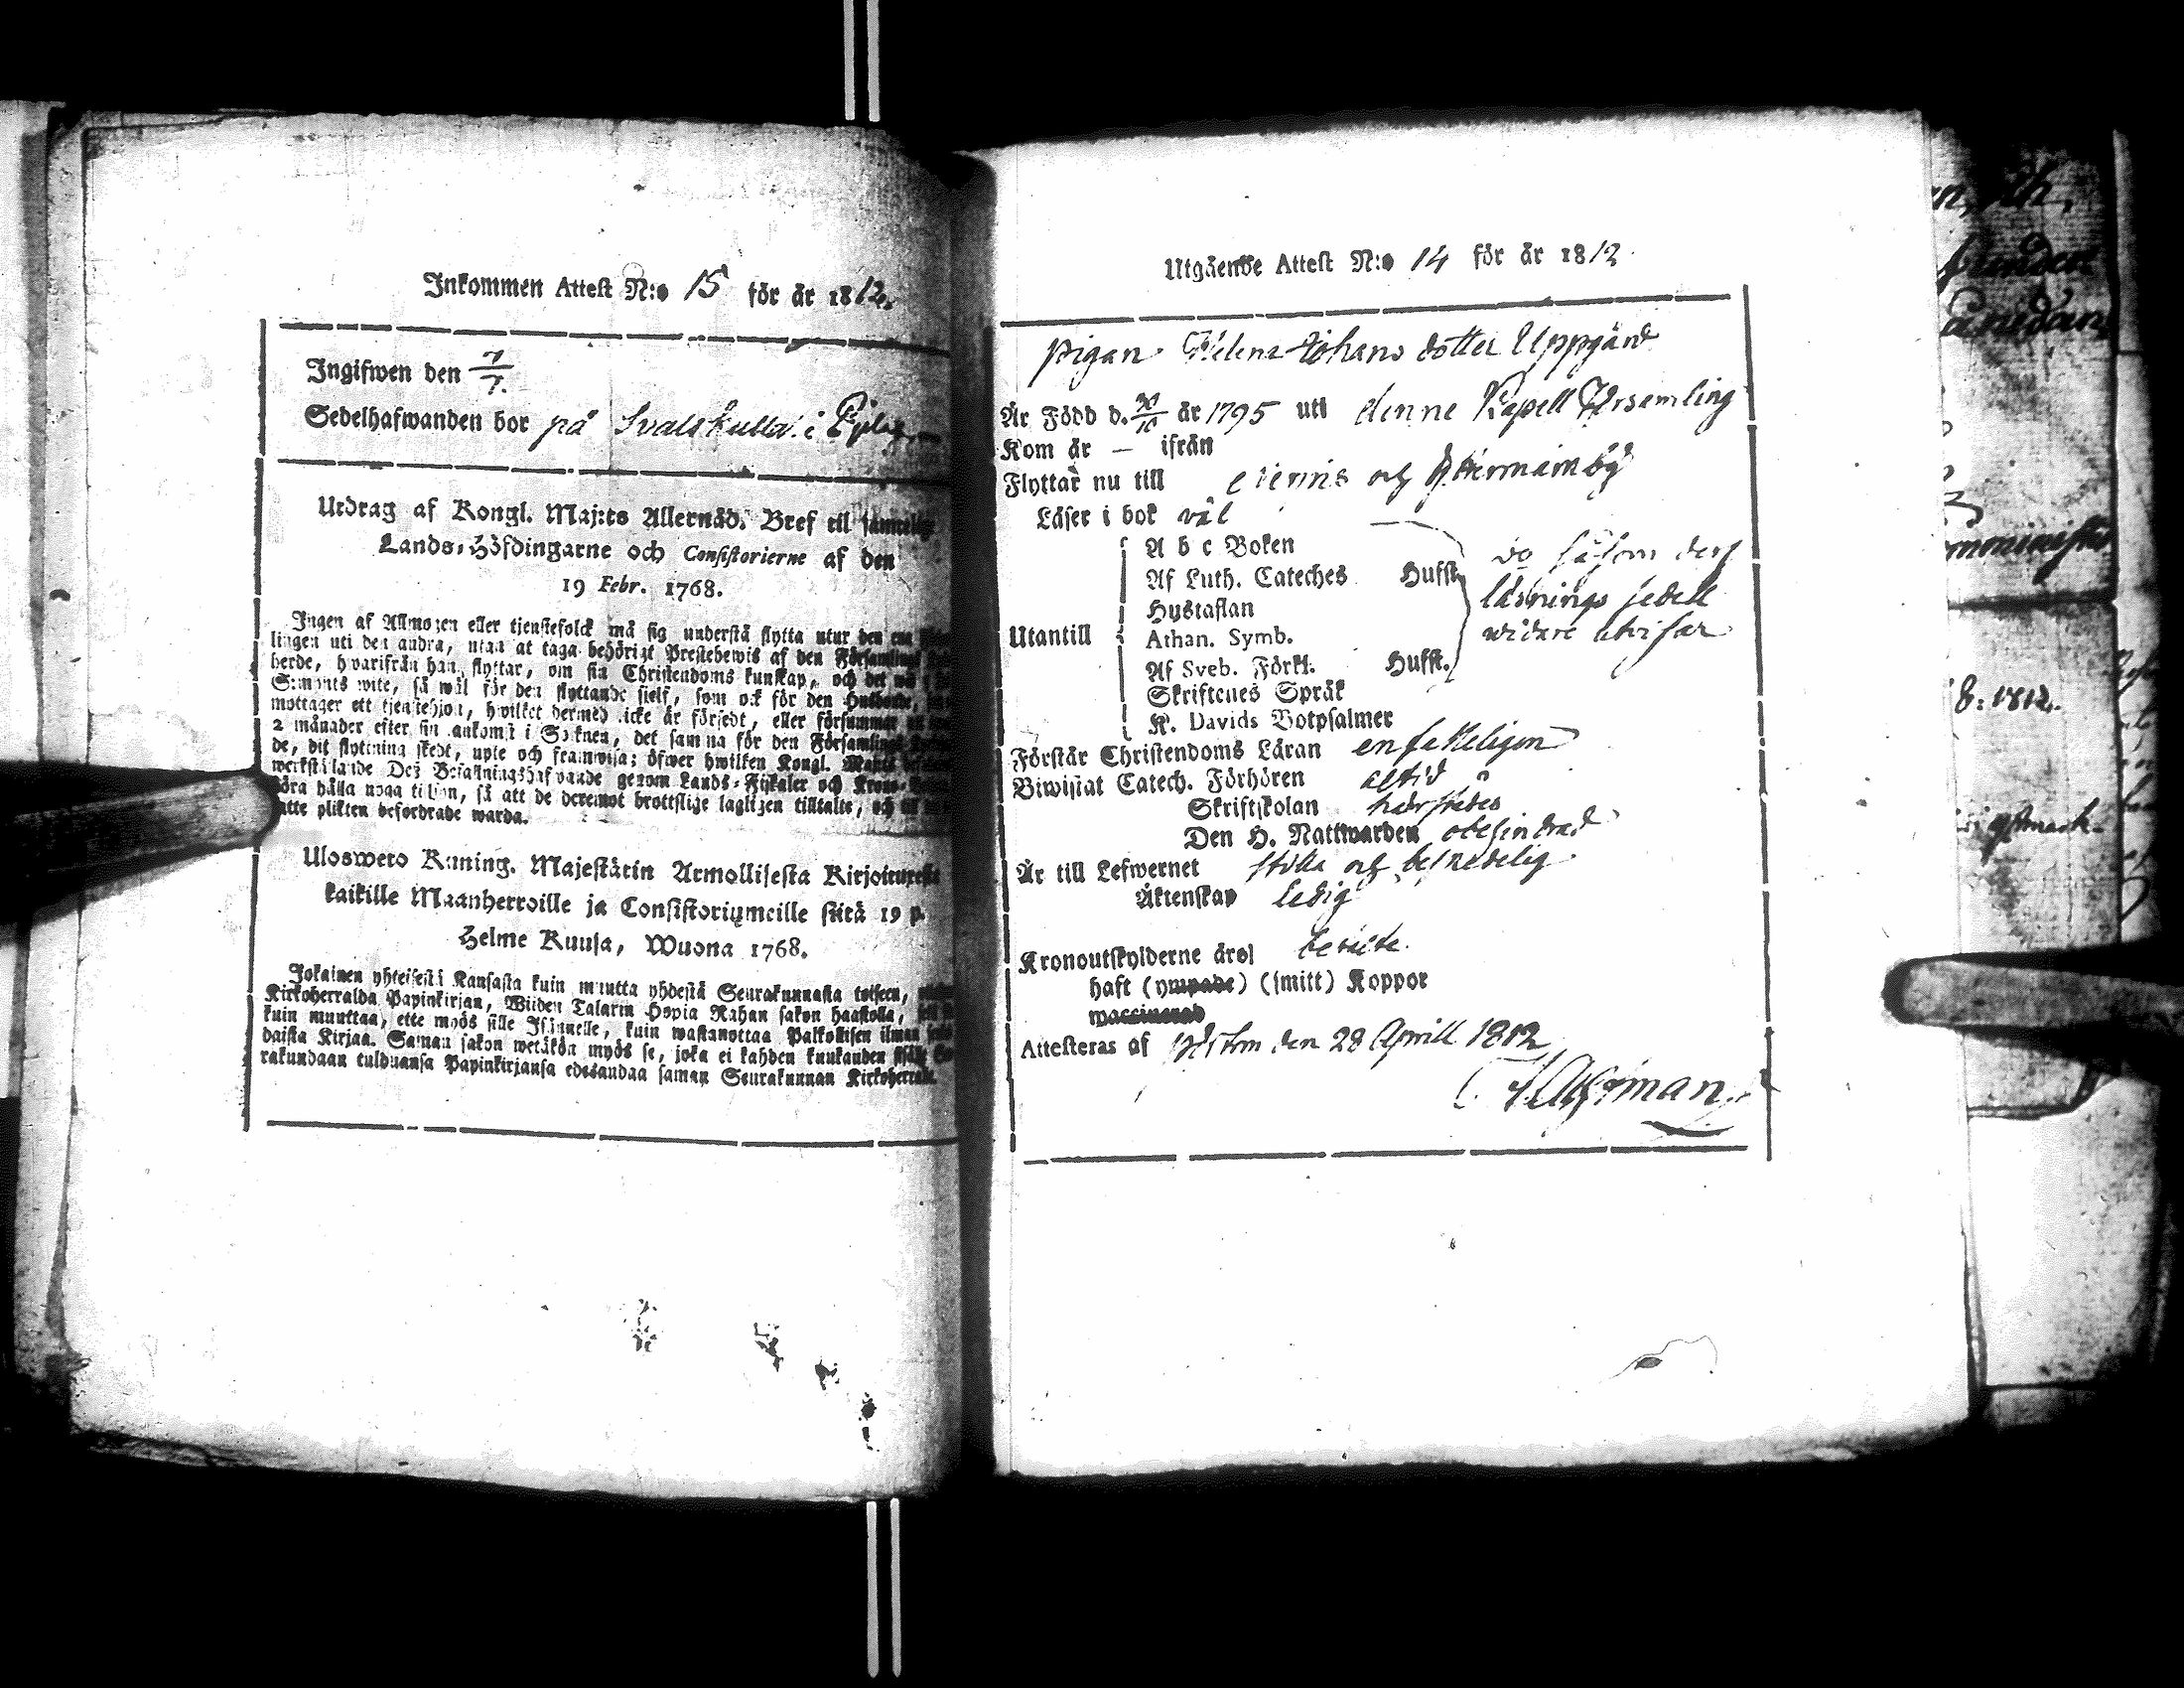 Inkommen Attest N:o 15 för år 1812.
Ingifwen den 7/7.
Sedelhafwanden bor på i
Utdrag af Kongl. Maj:ts Allernåd. Bref til samtelige
Lands-Höfdingarne och Consistorierne af den
19 Febr. 1768.
Ingen af Allmogen eller tjenstefolck må sig understå flytta utur den ena
lingen uti den andra, utan at taga behörigt Prestebewis af den Församlings
herde, hvarifrån han flyttar, om sin Christendoms kunskap, och det wid
S:monts wite, så wäl för den flyttande sielf, som ock för den Husbonde,
mottager ett tjenstehjon, hwilket dermed icke är försedt, eller försummar
2 månader efter sin ankomst i Soknen, det samma för den Församlings
de, dit flyttning skedt, upte och framwisa; öfwer hwilken Kongl. Maj:ts
werkställande Des Befallningshafwande genom Lands-Fiskaler och Krono-
göra hålla noga tilsyn, så att de deremot brottslige lagligen tilltalte, och
plikten befordrade warda.
Uloswero Kuning. Majestätin Armollisesta Kirjoituxesta
kaikille Maanherroille ja Consistoriumeille siitä 19 p.
Helme Kuusa, Wuona 1768.
Jokainen yhteisestä Kansasta kuin muutta yhdestä Seurakunnasta toiseen,
Kirkoherralda Papinkirjan, Wiiden Talarin Hopia Rahan sakon haastolla,
kuin muuttaa, ette myös sille Isännelle, kuin wastanottaa Palkollisen ilman
daista Kirjaa. Saman sakon wetäkön myös se, joka ei kahden kuukauden sisäll
rakundaan tulduansa Papinkirjansa edesandaa saman Seurakunnan Kirkoherralle.
Utgående Attest N:o 14 för år 1812.
Pigan Helena Johans dotter Uppgård
Är Född d. år 1795 uti denne Kapell Församling
Kom år — ifrån
Flyttar nu till och
Läser i bok väl
A b c Boken
Af Luth. Cateches Hufst.
Hustaflan
Utantill Athan. Symb.
Af Sveb. Förkl. Hufst.
Skriftenes Språk
K. Davids Botpsalmer
såsom dess
läsnings sedell
widare utvisar
Förstår Christendoms Läran enfaldeligen
Biwistat Catech. Förhören altid
Skriftskolan härstädes
Den H. Nattwarden obehindrad
Är till Lefwernet stilla och beskedelig
Äktenskap ledig
Kronoutskylderne äro betalte.
haft (ympade) (smitt) Koppor
waccinerad
Attesteras af den 28 Aprill 1812